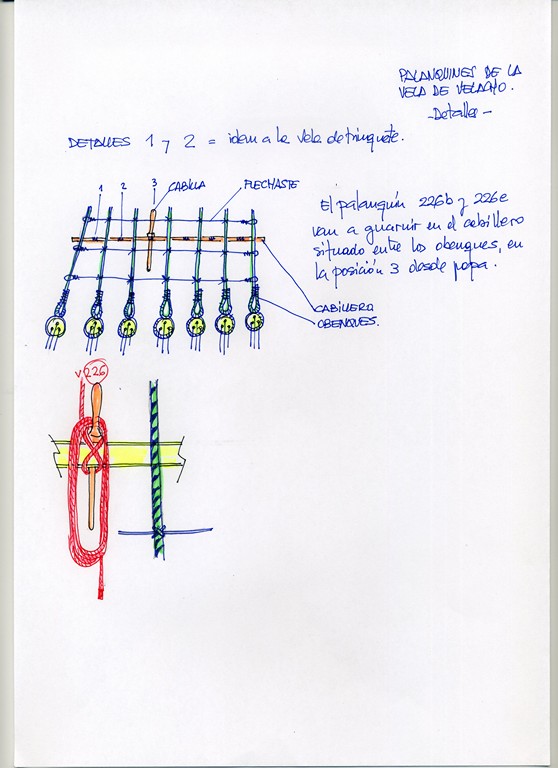 PALANQUINES DE LA
VELA DE VELACHO.
-Detalles-
DETALLES 1 y 2 = idem a la vela de trinquete.
1 2 3 CABILLA FLECHASTE
El palanquín 226b y 226e
van a guarnir en el cabillero
situado entre los obenques, en
la posición 3 desde popa.
CABILLERO
OBENQUES.
V 226